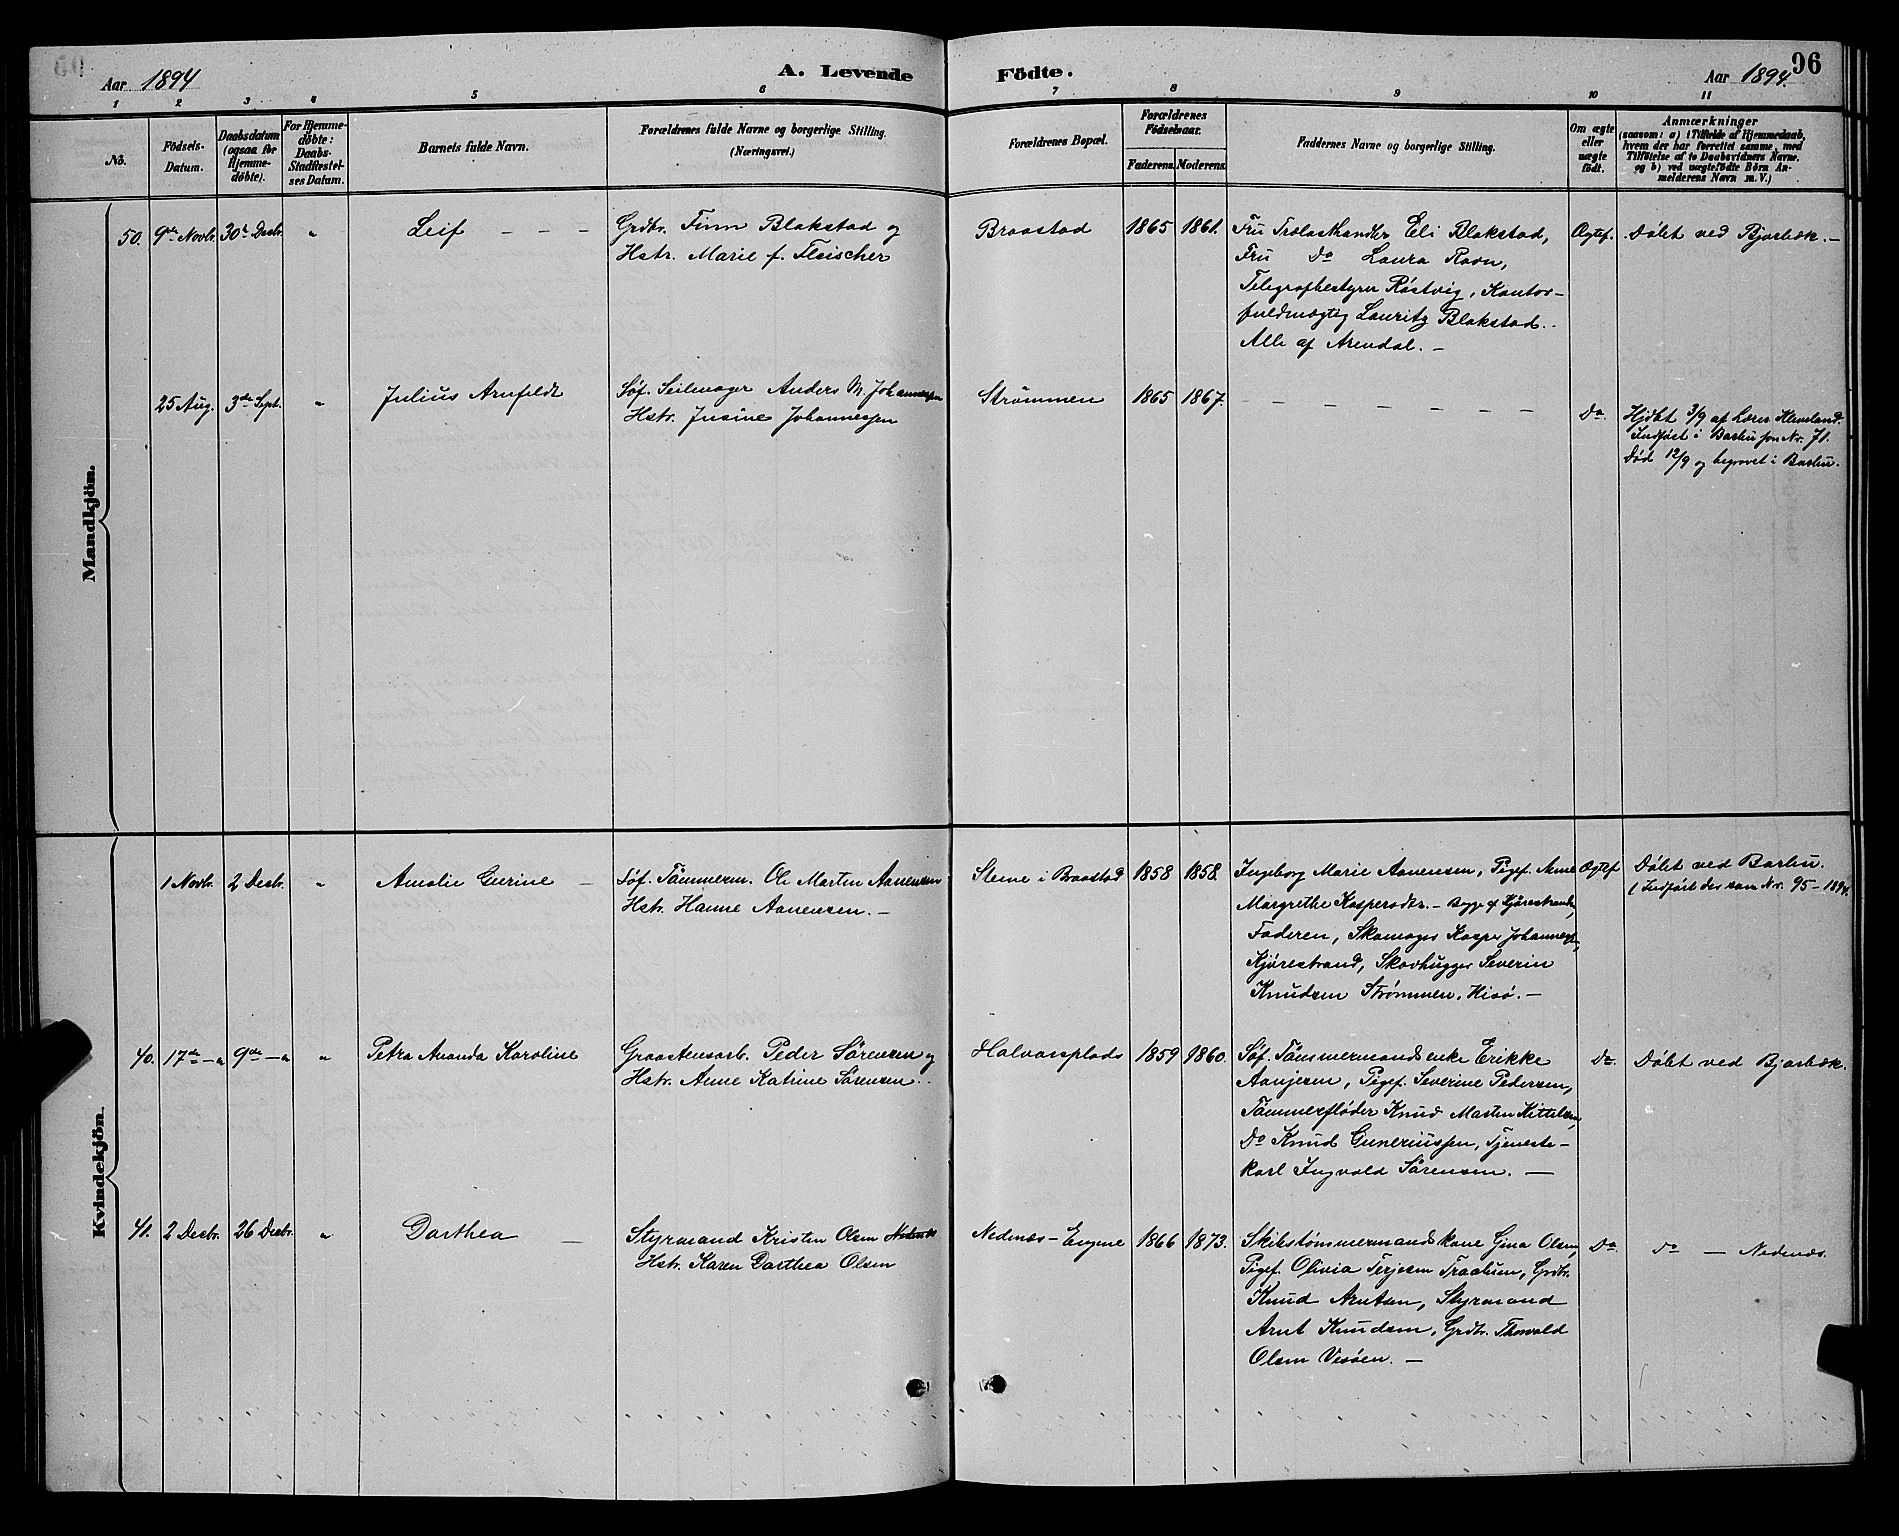 Aar 1894
A. Levende
Födte.
Aar 1894.
96
1 2 3 4 5 6 7 8 9 10 11
No.
Födsels-
Datum.
Daabsdatum
(ogsaa for
Hjemme-
døbte).
For Hjemme-
døbte:
Daabs-
Stadfæstel-
ses Datum.
Barnets fulde Navn.
Forældrenes fulde Navne og borgerlige Stilling.
(Næringsvei.)
Forældrenes Bopæl.
Forældrenes
Födselsaar.
Faderens. Moderens.
Faddernes Navne og borgerlige Stilling.
Om ægte
eller
uægte
født.
Anmærkninger
(saasom: a) i Tilfælde af Hjemmedaab,
hvem der har forrettet samme, med
Tilföielse af to Daabsvidners Navne.
og b) ved uægtefødte Börn An-
melderens Navn m. V.)
Mandkjön.
50. 9de Novbr. 30te Decbr. " Leif — — —
Grdbr. Finn Blakstad og
Hstr. Marie f. Fleischer
Braastad 1865 1861.
Fru Trælasthandler Eli Blakstad,
Fru Do Laura Ravn,
Telegrafbestyrer Røstvig, Kontor-
fuldmægtig Lauritz Blakstad.
Alle af Arendal. —
Ægtef. Døbt ved Bjorbæk. —
25 Aug. 3de Sept. " Julius Arnfeldt
Søf. Seilmager Anders M. Johannessen
Hstr. Jusine Johannessen
Strømmen 1865 1867. — — — — — — —
Do. Hjdbt 3/9 af Lærer Kleveland.
Indført i Barbu som Nr. 71.
Død 12/9 og begravet i Barbu.
Kvindekjön.
1 Novbr. 2 Decbr. " Amalie Gurine —
Søf. Tömmerm. Ole Martin Aanensen
Hstr. Hanne Aanensen. —
Stene i Braastad 1858 1858.
Ingeborg Marie Aanensen, Pigef. Anne
Margrethe Kaspersdtr. — Begge af Kjørestrand,
Faderen, Skomager Kasper Johannessen,
Kjørestrand, Skovhugger Severin
Knudsen Strømmen, Hisö. —
Ægtef Døbt ved Barbu.
(Indført der som Nr. 95 - 1894.
40. 17de — " 9de — " " Petra Amanda Karoline
Graastensarb. Peder Sörensen og
Hstr. Anne Katrine Sörensen.
Halvorsplads 1859 1860.
Søf. Tömmermands enke Erikke
Aanjesen, Pigef. Severine Pedersen,
Tömmerfløder Knud Martin Kittelsen,
Do Knud Guneriussen, Tjeneste-
karl Ingvald Sörensen. —
Do. Døbt ved Bjorbæk.
41. 2 Decbr. 26 Decbr. " Dorthea —
Styrmand Kristen Olsen
Hstr. Karen Dorthea Olsen
Nedenæs - Engene 1866 1873.
Skibstømmermandskone Gina Olsen,
Pigef. Olivia Terjesen Traatum, Grdbr.
Knud Arntsen, Styrmand
Arnt Knudsen, Grdbr. Thorvald
Olsen Vesöen. —
Do. Do — Nedenæs.